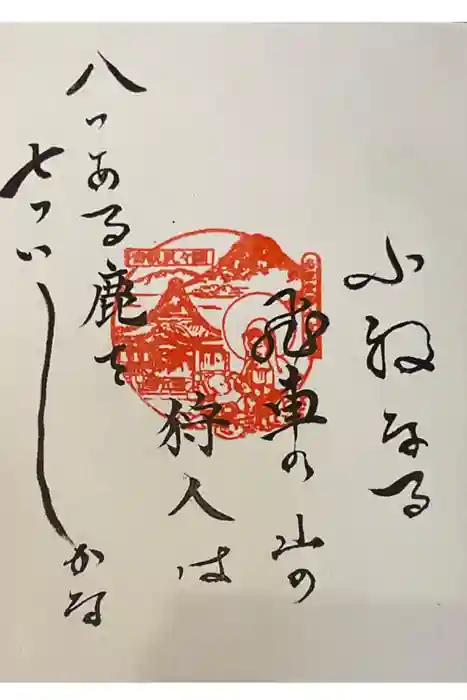 小牧なる
飛車の山の
狩人は
八つある鹿を
七ついしかな